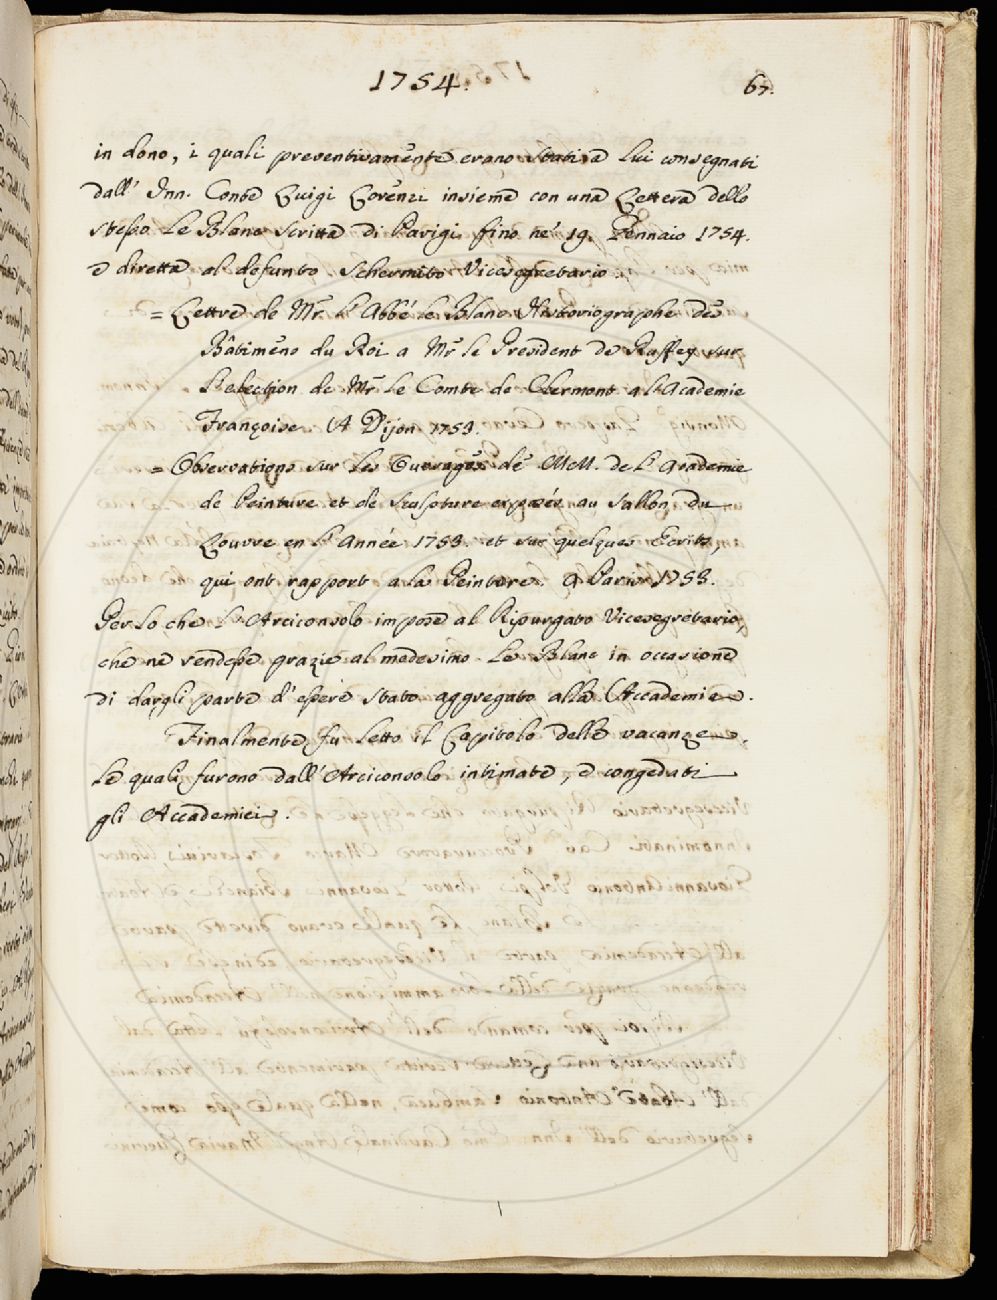 1754.
67.
in dono, i quali preventivamente erano stati a lui consegnati
dall' Inn. Conte Luigi Lorenzi insieme con una Lettera dello
stesso Le Blanc scritta di Parigi fino ne' 19. Gennaio 1754.
e diretta al defunto Schermito Vicesegretario.
= Lettre de Mr. l'Abbé le Blanc Historiographe des
Bâtimens du Roi a Mr le President de Ruffey sur
l'election de Mr. le Comte de Clermont a l'Academie
Françoise. A Dijon 1753.
= Observations sur les Ouvrages de MM. de l'Academie
de Peinture et de Sculpture exposés au Sallon du
Louvre en l'Année 1753. et sur quelques Ecrits,
qui ont rapport a la Peinture. A Paris 1753.
Per lo che l'Arciconsolo impose al Ripurgato Vicesegretario,
che ne rendesse grazie al medesimo Le Blanc in occasione
di dargli parte d'essere stato aggregato alla Accademia.
Finalmente fu letto il Capitolo delle vacanze,
le quali furono dall'Arciconsolo intimate, e congedati
gli Accademici.